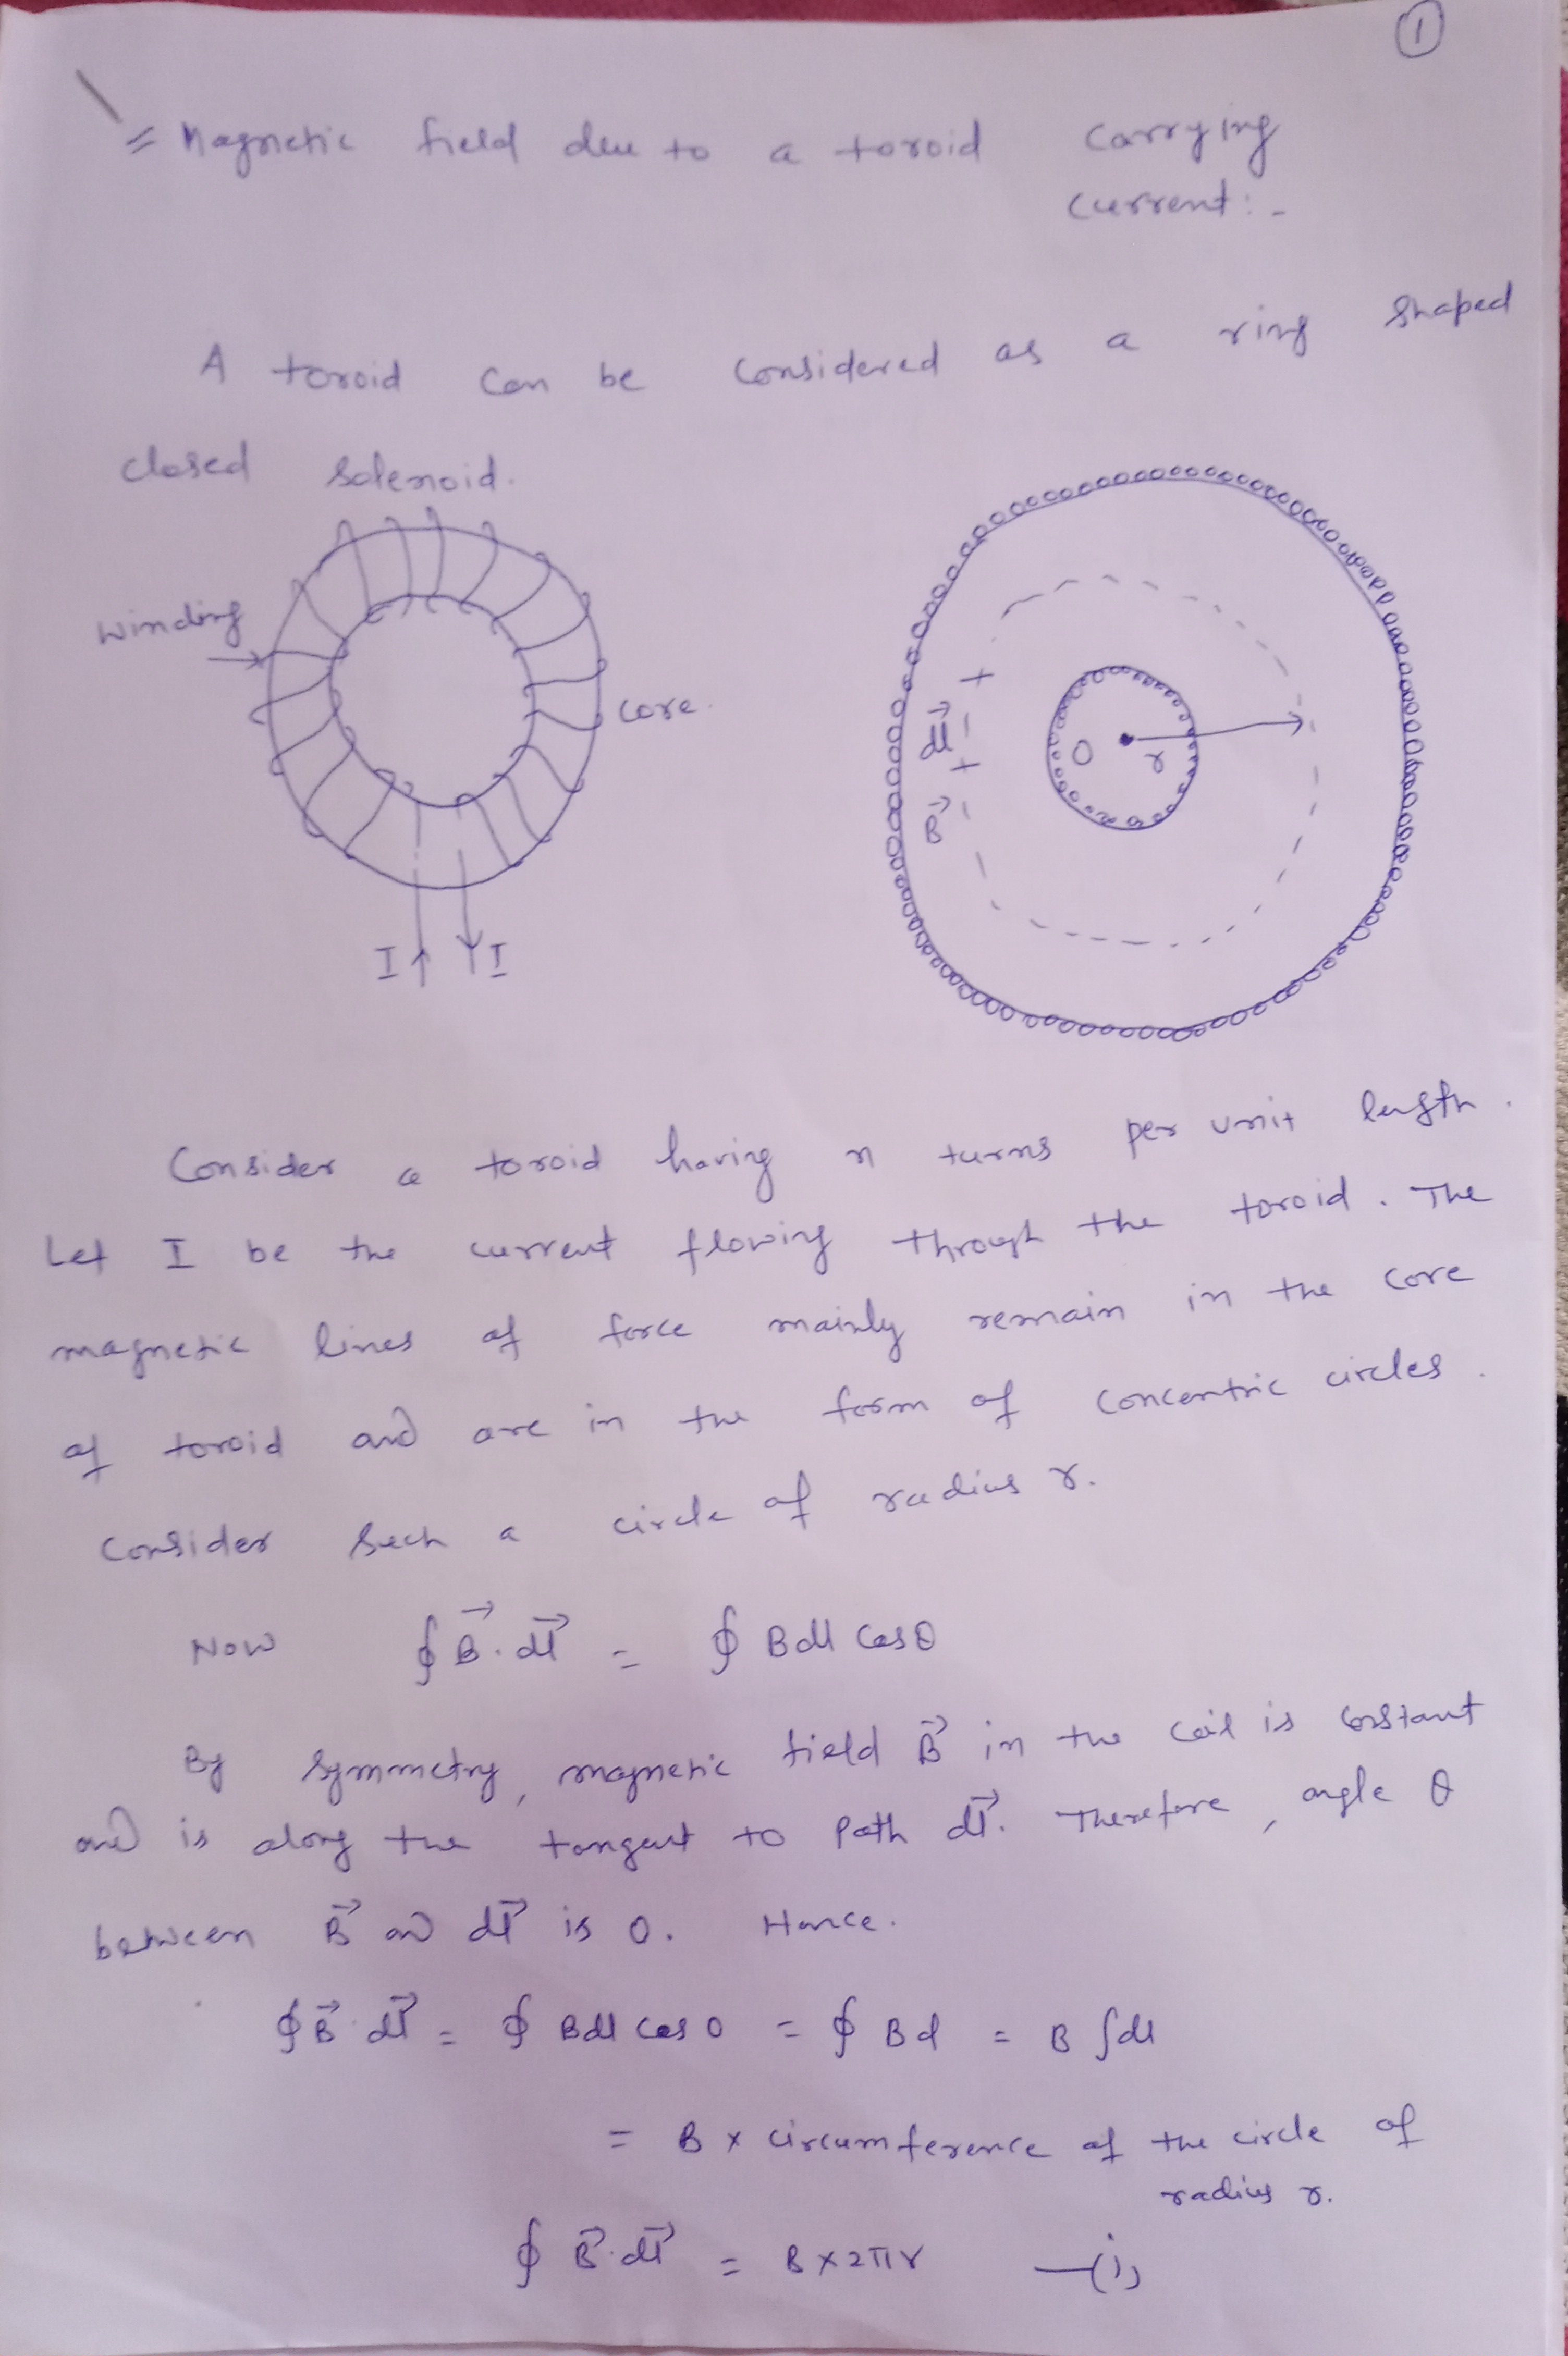 ①
= Magnetic field due to a toroid carrying
current:-
A toroid can be considered as a ring shaped
closed solenoid.
winding
core.
I I
dl⃗
B⃗
O r
Consider a toroid having n turns per unit length.
Let I be the current flowing through the toroid. The
magnetic lines of force mainly remain in the core
of toroid and are in the form of concentric circles.
Consider such a circle of radius r.
Now ∮ B⃗. dl⃗ = ∮ Bdl cosθ
By symmetry, magnetic field B⃗ in the coil is constant
and is along the tangent to path dl⃗. Therefore, angle θ
between B⃗ and dl⃗ is 0. Hence.
∮ B⃗. dl⃗ = ∮ Bdl cos 0 = ∮ Bd = B ∫dl
= B × circumference of the circle of
radius r.
∮ B⃗.dl⃗ = B×2πr —(i)